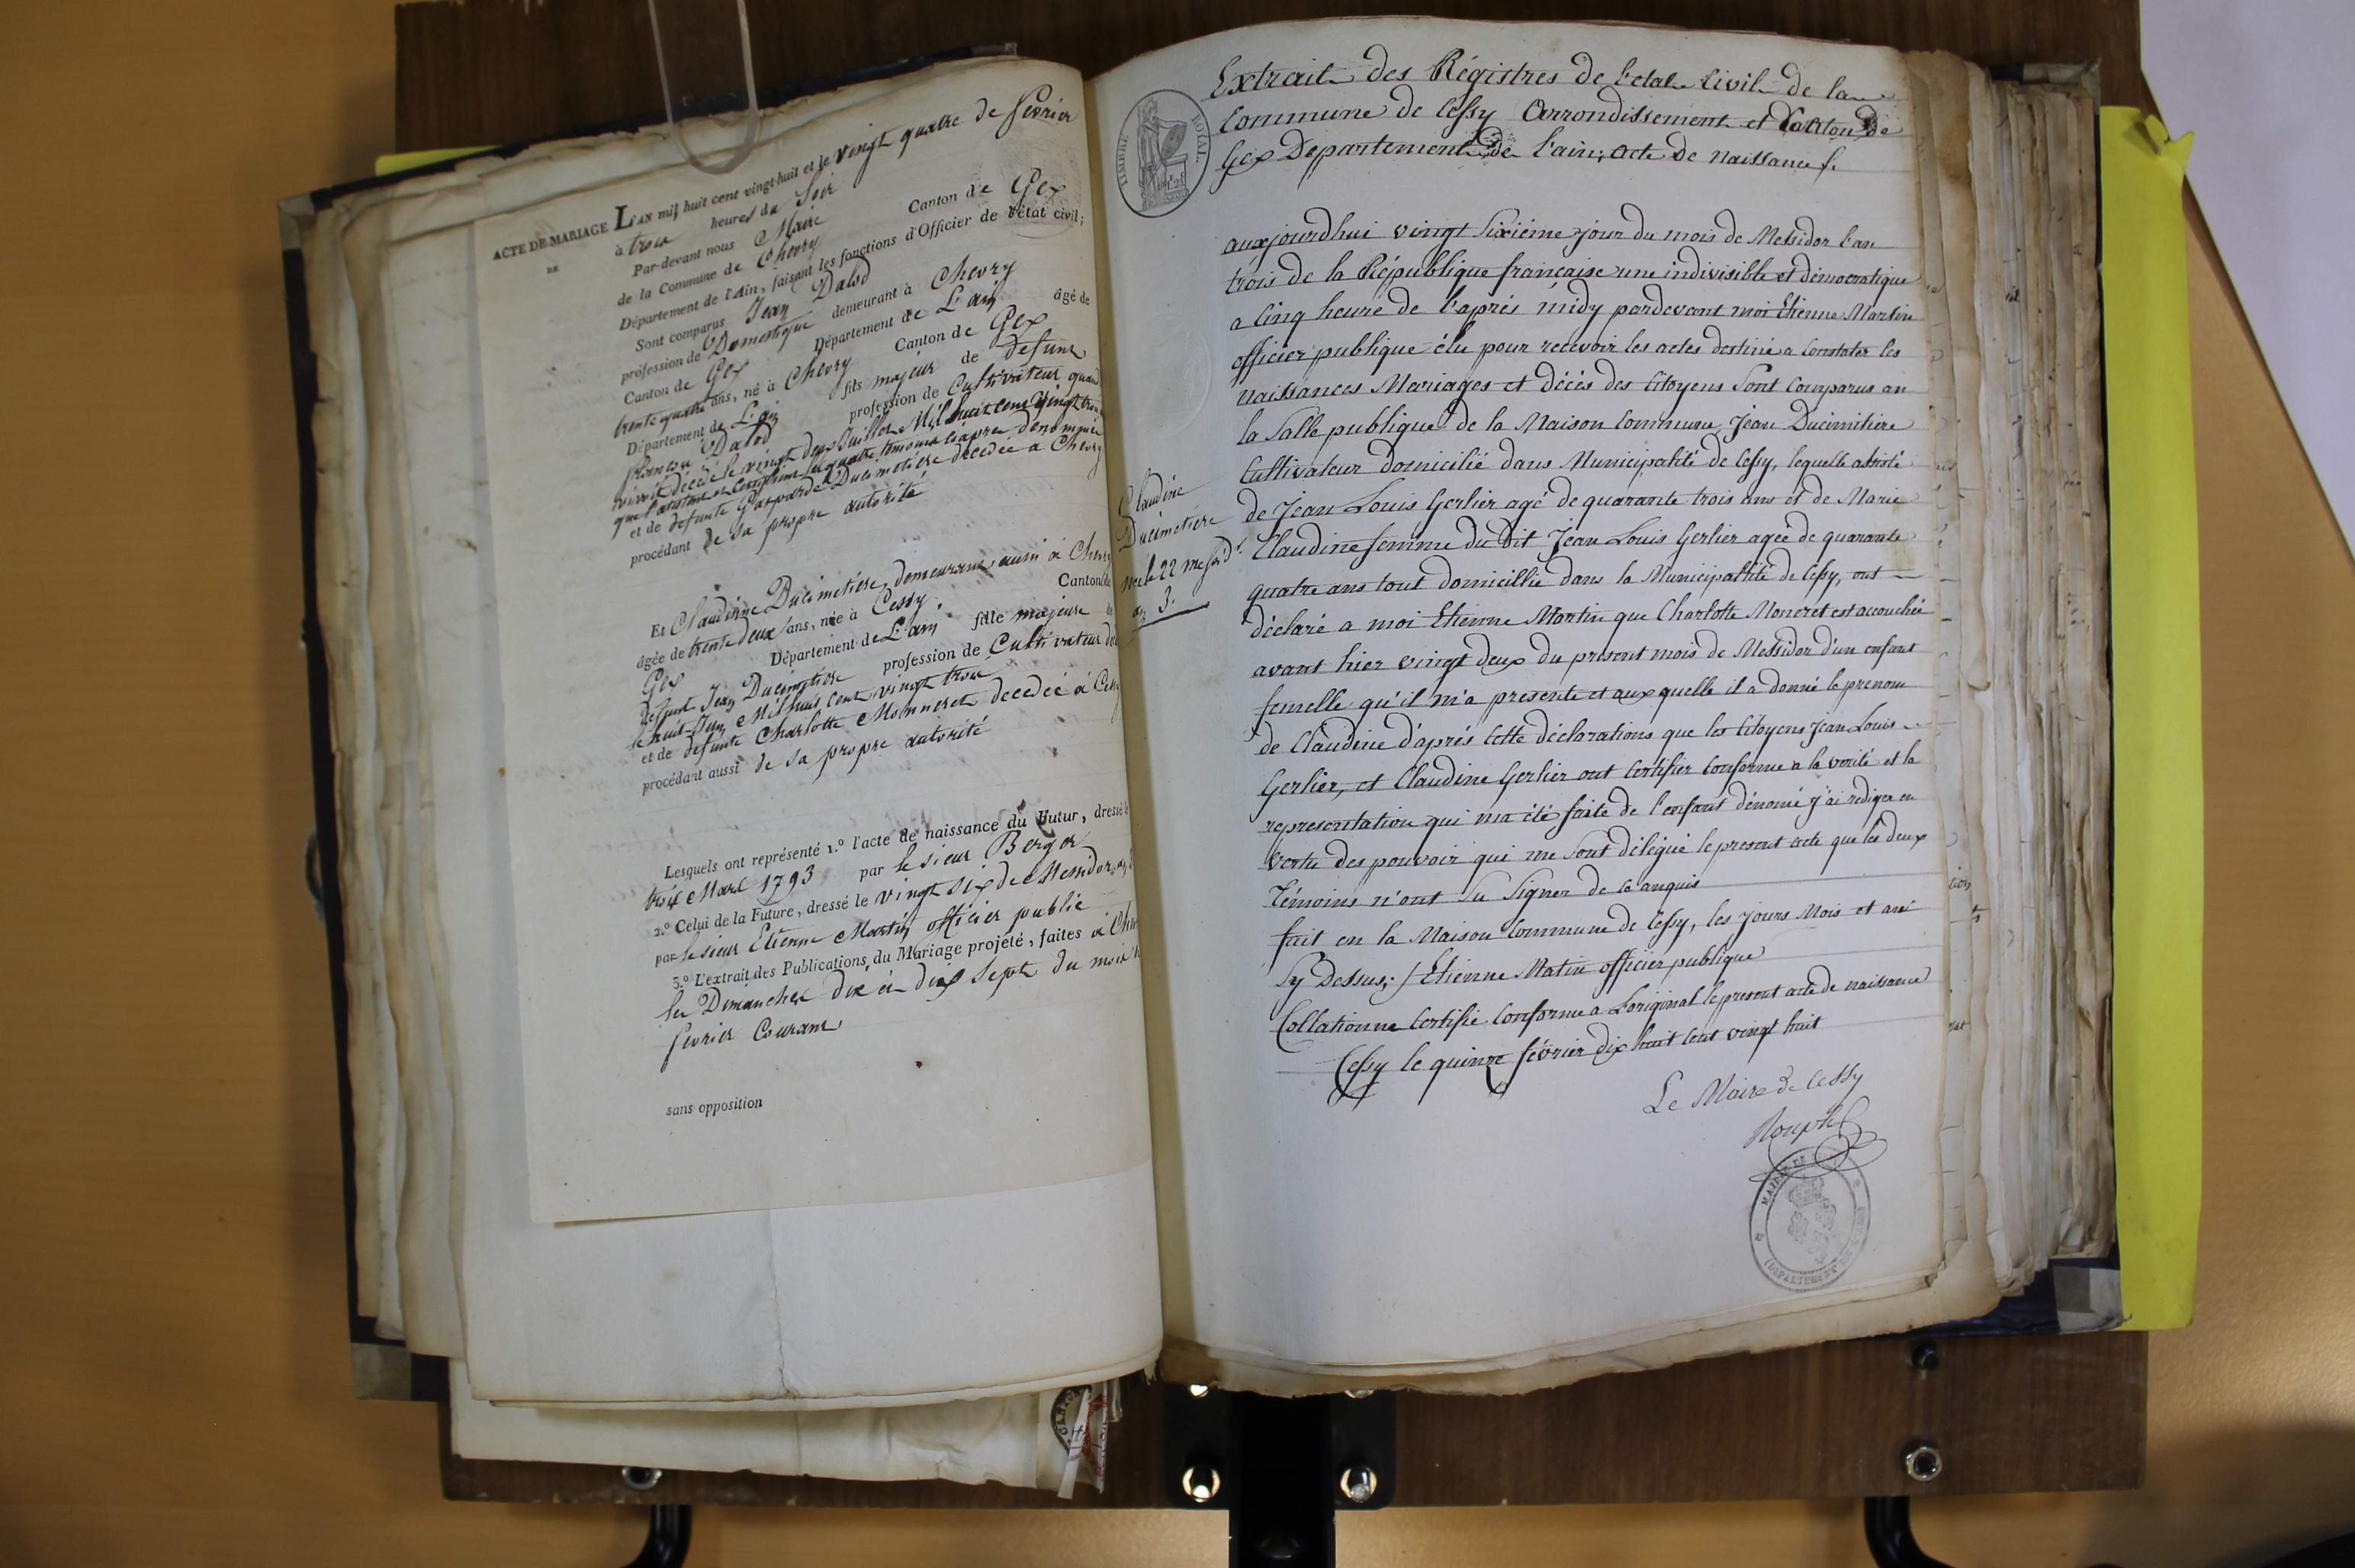 ACTE DE MARIAGE L'AN mil huit cent vingt-huit et le vingt quatre de fevrier
DE
à trois heures du Soir
Par-devant nous Maire
de la Commune de Chevry Canton de Gex
Département de l'Ain, faisant les fonctions d'Officier de l'état civil;
Sont comparus Jean Dalod
profession de Domestique demeurant à Chevry
Canton de Gex Département de L'ain âgé de
trente quatre ans, né à Chevry Canton de Gex
Département de L'ain fils majeur de defunt
françois Dalod profession de Cultivateur quand
vivoit décédé le vingt deux Juillet Mil huit cent vingt trois
que l'attestent les quatre temoins ci après denommés
et de defunte Gasparde Ducimetière decedée à Chevry
procédant de sa propre autorité
Et Claudine Ducimetière, demeurant aussi à Chevry
âgée de trente deux ans, née à Cessy. Canton de
Gex Département de L'ain fille majeure de
defunt Jean Ducimetière profession de Cultivateur
le huit Juin Mil huit cent vingt trois
et de defunte Charlotte Monneret decedée à Cessy
procédant aussi de sa propre autorité
Lesquels ont représenté 1.º l'acte de naissance du Futur, dressé le
trois Mars 1793 par le sieur Berger
2.º Celui de la Future, dressé le vingt six de Messidor an 3
par le sieur Etienne Martin officier public
3.º L'extrait des Publications du Mariage projeté, faites à Chevry
les Dimanches dix et dix sept du mois de
fevrier Courant
sans opposition
Extrait des Régistres de l'etat Civil de la
Commune de Cessy Arrondissement et Canton de
Gex Departement de l'ain; acte de naissance f.
TIMBRE ROYAL
auxjourdhui vingt Sixiéme jour du mois de Messidor l'an
trois de la République française une indivisible et démocratique
a Cinq heure de l'aprés midy pardevant moi Etienne Martin
officier publique élu pour recevoir les actes destiné a Constater les
naissances Mariages et décès des Citoyens Sont Comparus an
la Salle publique de la Maison Commune, Jean Ducimitiere
Cultivateur domicilié dans Municipalité de Cessy, lequelle assisté
de Jean Louis Gerlier agé de quarante trois ans et de Marie
Claudine femme du dit Jean Louis Gerlier agée de quarante
quatre ans tout domicillié dans la Municipallité de Cessy, ont
déclaré a moi Etienne Martin que Charlotte Moneret est accouchée
avant hier vingt deux du present mois de Messidor d'un enfant
femelle qu'il m'a presenté et aux quelle il a donné le prenom
de Claudine d'aprés Cette déclarations que les Citoyens Jean Louis
Gerlier, et Claudine Gerlier ont Certifier Conforme a la verité et la
representation qui ma été faite de l'enfant dénomé j'ai rediger en
vertu des pouvoir qui me Sont délégué le present acte que les deux
Témoins n'ont Su Signer de Ce anquis
fait en la Maison Commune de Cessy, les jours Mois et an
Sy Dessus; / Etienne Matin officier publique
Collationne Certifié Conforme a L'original le present acte de naissance
Cessy le quinze février dix huit Cent vingt huit
Le Maire de Cessy
Claudine
Ducimetiere
née le 22 messid.r
an 3.
MAIRIE DE
DEPARTEMENT